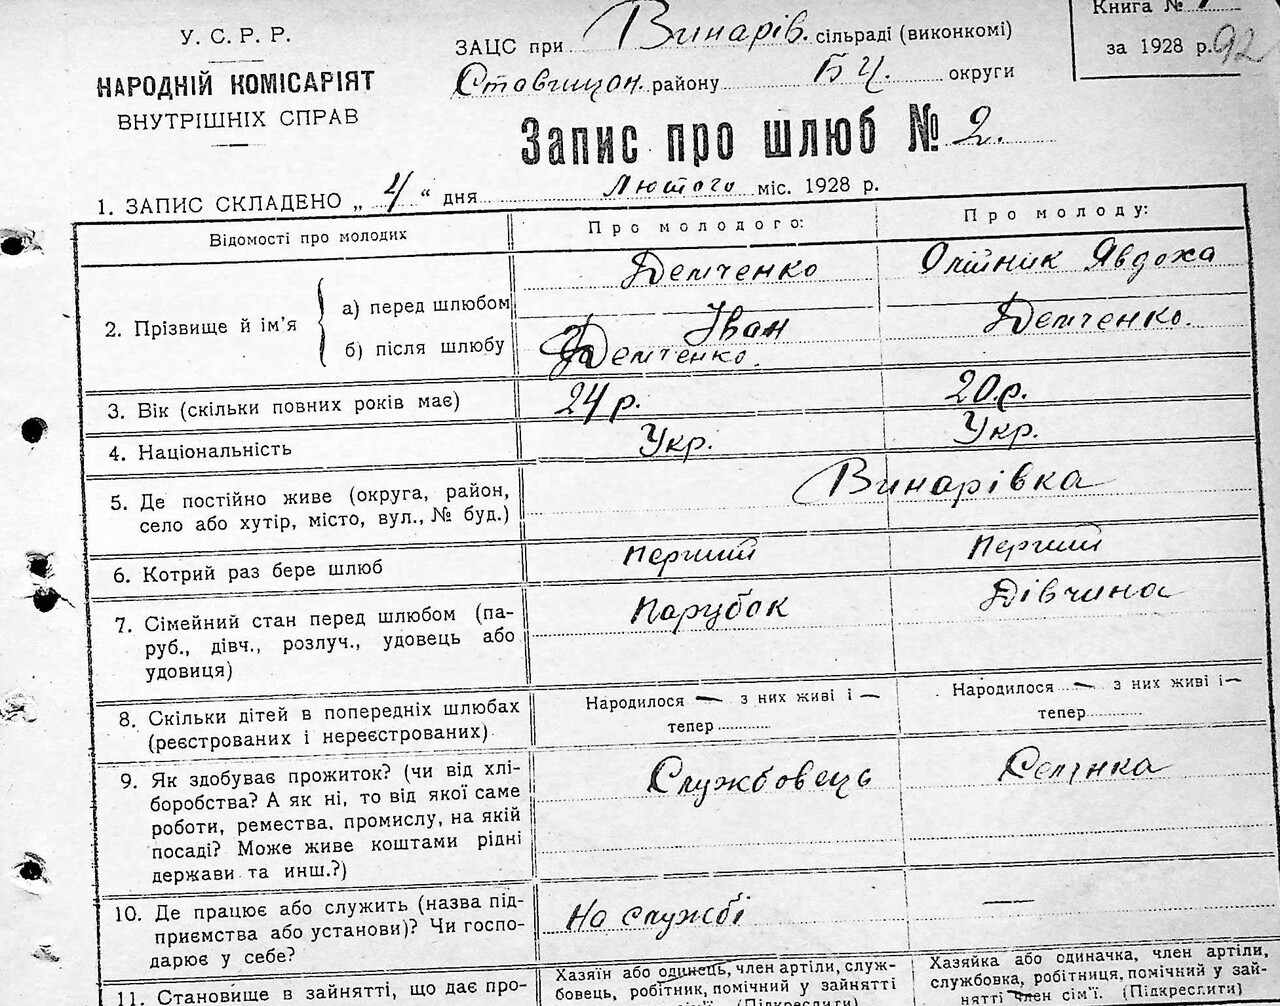 У. С. Р. Р.
НАРОДНІЙ КОМІСАРІЯТ
ВНУТРІШНІХ СПРАВ
ЗАЦС при Винарів. сільраді (виконкомі)
Ставищан. району БЦ. округи
Книга №
за 1928 р. 92
Запис про шлюб № 2.
1. ЗАПИС СКЛАДЕНО „ 4 “ дня Лютого міс. 1928 р.
Відомості про молодих
Про молодого:
Про молоду:
2. Прізвище й ім’я
а) перед шлюбом
б) після шлюбу
Демченко
Іван
Демченко.
Олійник Явдоха
Демченко.
3. Вік (скільки повних років має)
24 р.
20.р.
4. Національність
Укр.
Укр.
5. Де постійно живе (округа, район,
село або хутір, місто, вул., № буд.)
Винарівка
6. Котрий раз бере шлюб
Перший
Перший
7. Сімейний стан перед шлюбом (па-
руб., дівч., розлуч., удовець або
удовиця)
Парубок
Дівчина
8. Скільки дітей в попередніх шлюбах
(реєстрованих і нереєстрованих)
Народилося — з них живі і —
тепер
Народилося — з них живі і —
тепер
9. Як здобуває прожиток? (чи від хлі-
боробства? А як ні, то від якої саме
роботи, ремества, промислу, на якій
посаді? Може живе коштами рідні
держави та инш.?)
Службовець
Селянка
10. Де працює або служить (назва під-
приємства або установи)? Чи госпо-
дарює у себе?
На службі
—
11. Становище в зайнятті, що дає про-
Хазяїн або одинець, член артіли, служ-
бовець, робітник, помічний у зайнятті
член сім'ї. (Підкреслити)
Хазяйка або одиначка, член артіли,
службовка, робітниця, помічний у зай-
нятті член сім'ї. (Підкреслити)